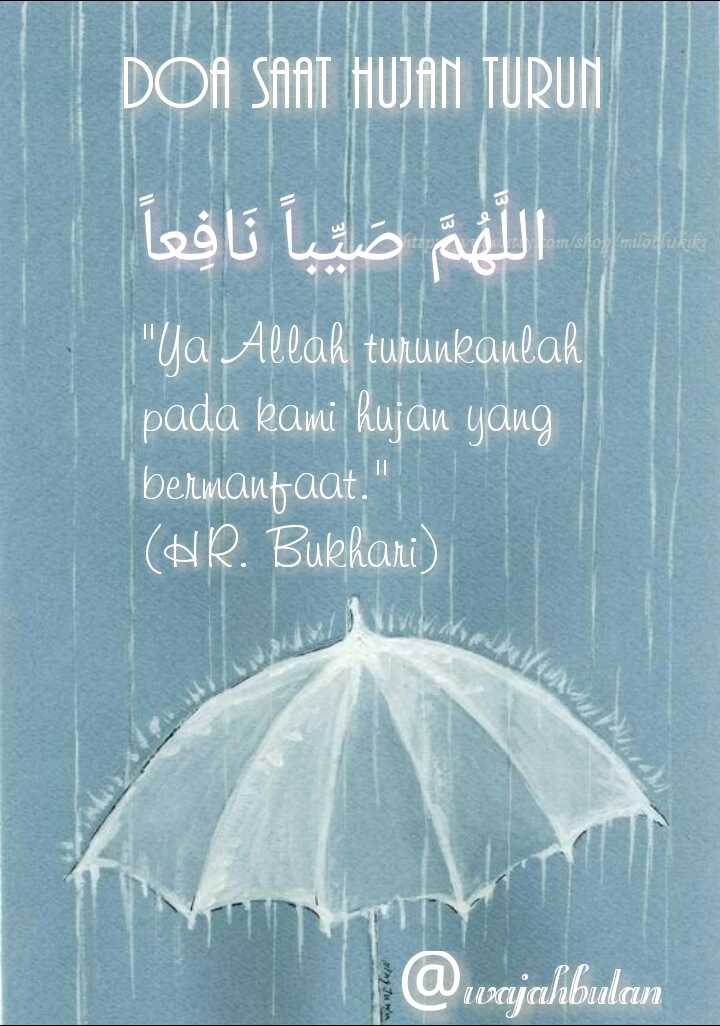 DOA SAAT HUJAN TURUN
اللَّهُمَّ صَيِّباً نَافِعاً
"Ya Allah turunkanlah
pada kami hujan yang
bermanfaat."
(HR. Bukhari)
@wajahbulan